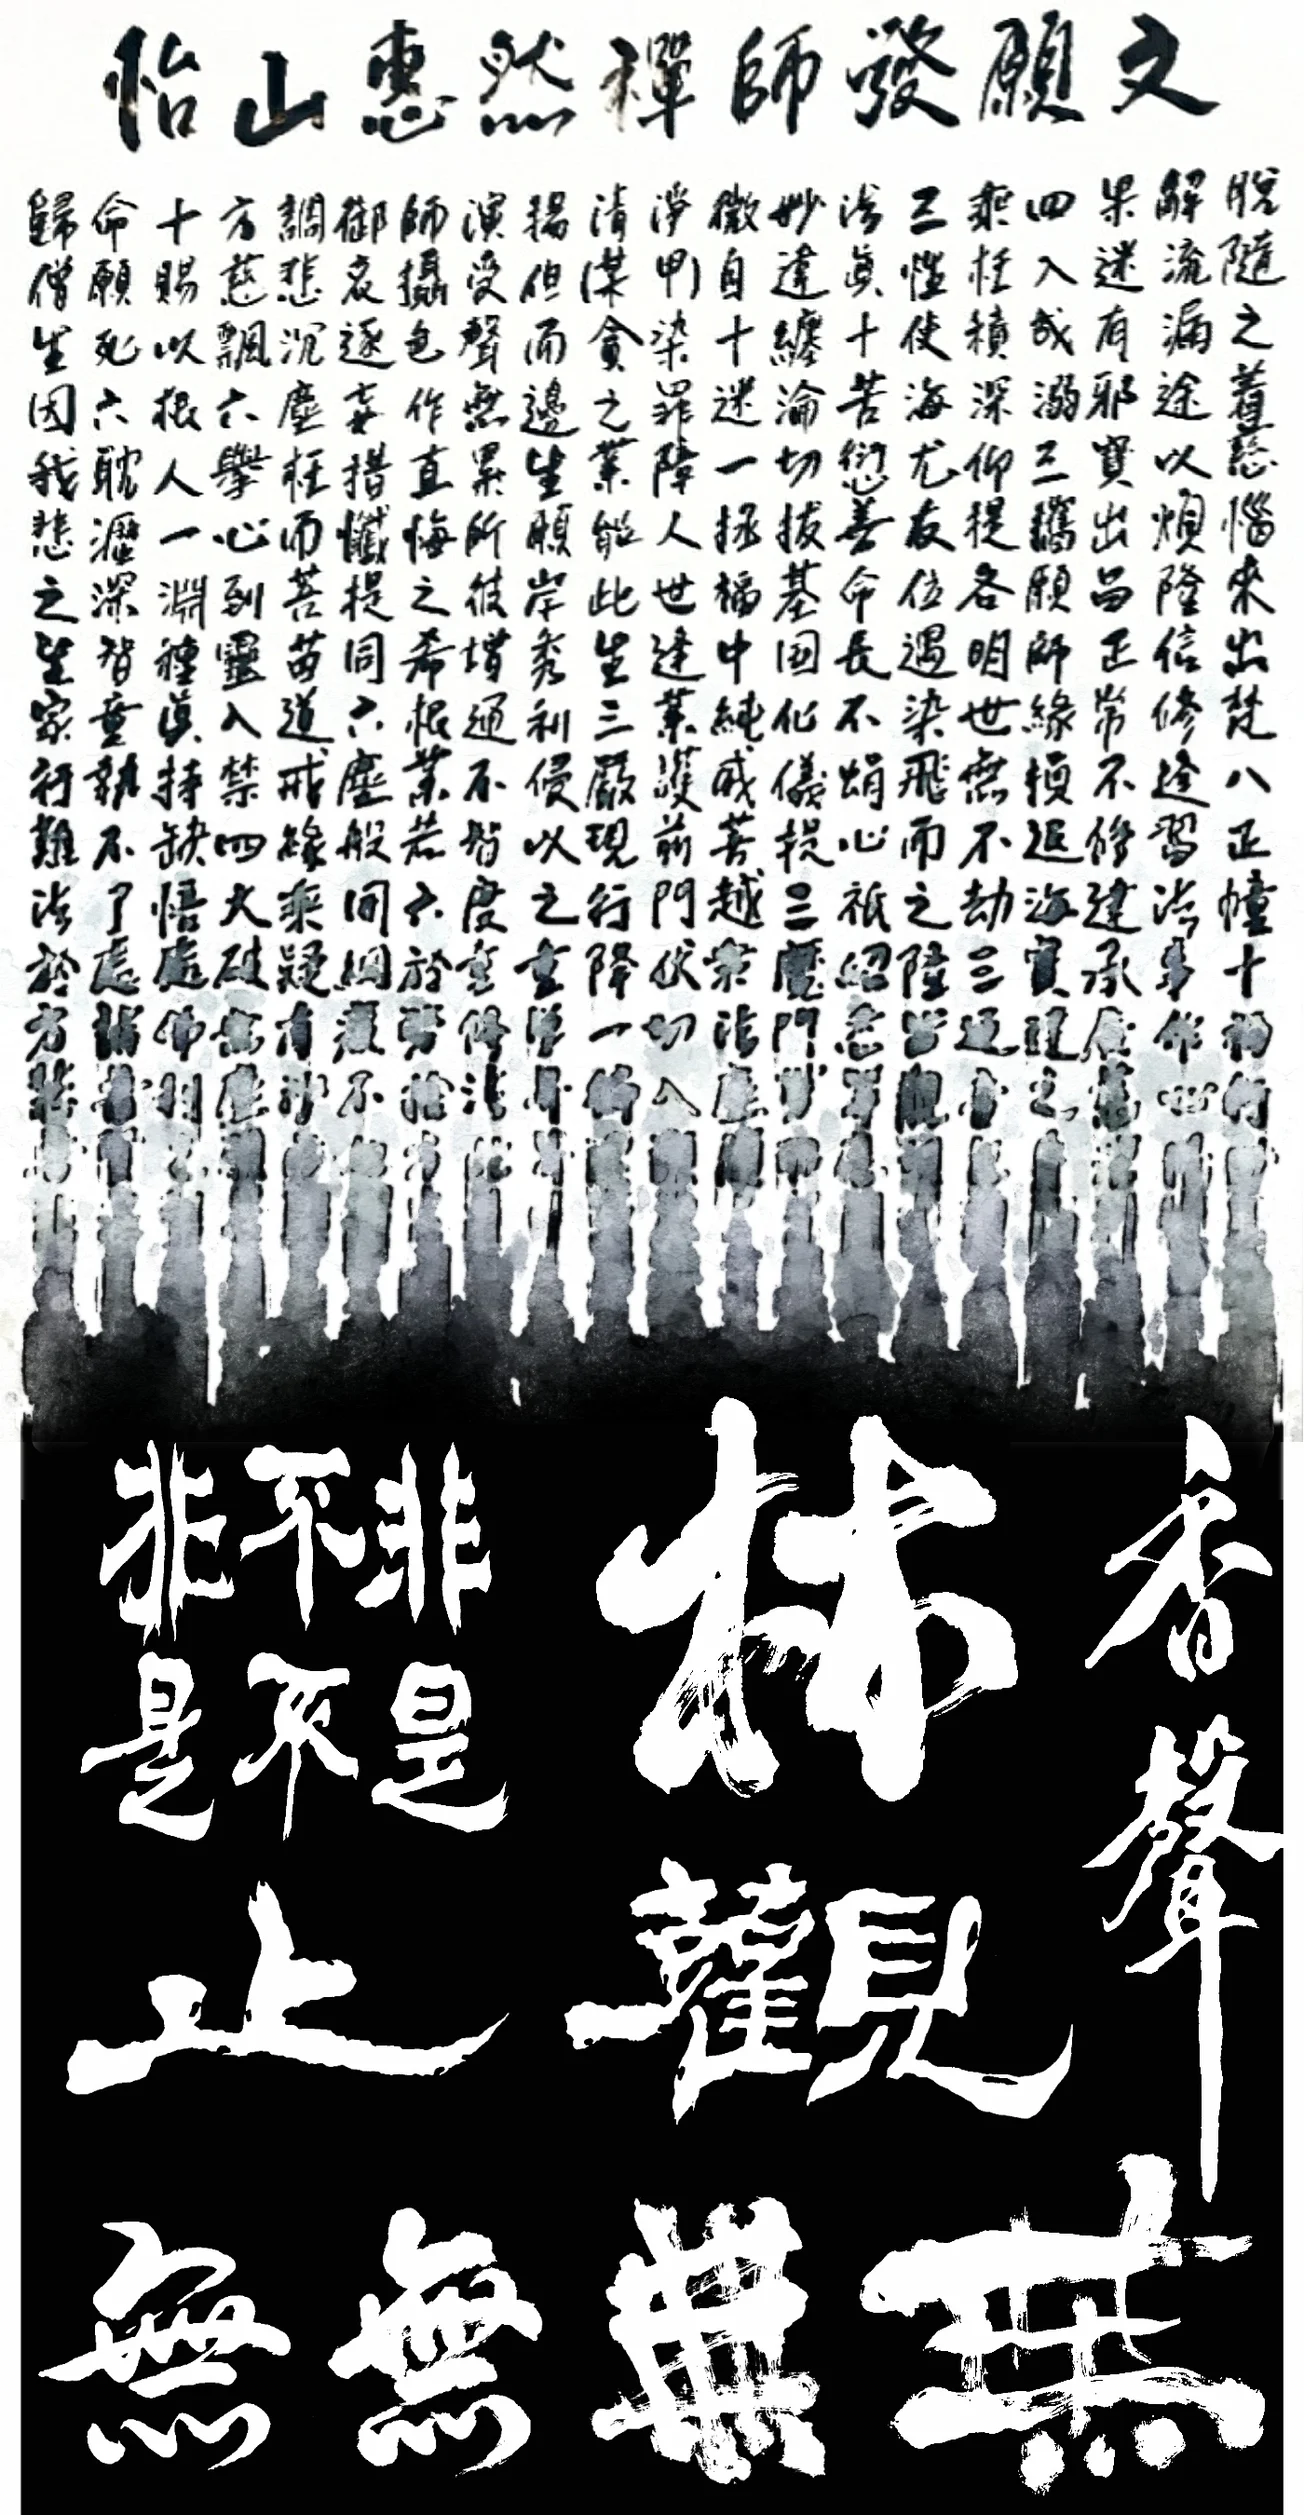 怡山惠然禪師發願文
歸命十方調御師演揚清淨微妙法三乘四果解脫
僧願賜慈悲哀攝受但某甲自違真性枉入迷流隨
生死以飄沉逐色聲而貪染十纏十使積成有漏之
因六根六塵妄作無邊之罪迷淪苦海深溺邪途着
我耽人舉枉措直累生業障一切愆尤仰三寶以慈
悲瀝一心而懺悔所願能人拯拔善友提攜出煩惱
之深淵到菩提之彼岸此世福基命位各願昌隆來
生智種靈苗同希增秀生達中国長遇明師正信出
家童真入道六根通利三業純化不染世緣常修梵
行執持禁戒塵業不侵嚴護威儀蜎飛無損不逢八
難不缺四緣般若智以現前菩提心而不退修習正
法了悟大乘開六度之行門越三祇之劫海建法幢
於處處破疑網於重重降伏眾魔紹隆三寶承事十
方諸佛無有疲勞修學一切法門悉皆通達廣作福
香聲
林觀
非不非
是不是
止
無無無無